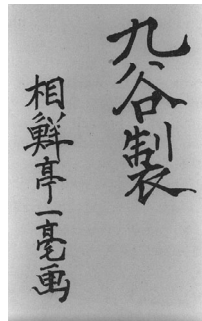 九谷製
相鮮亭一毫画